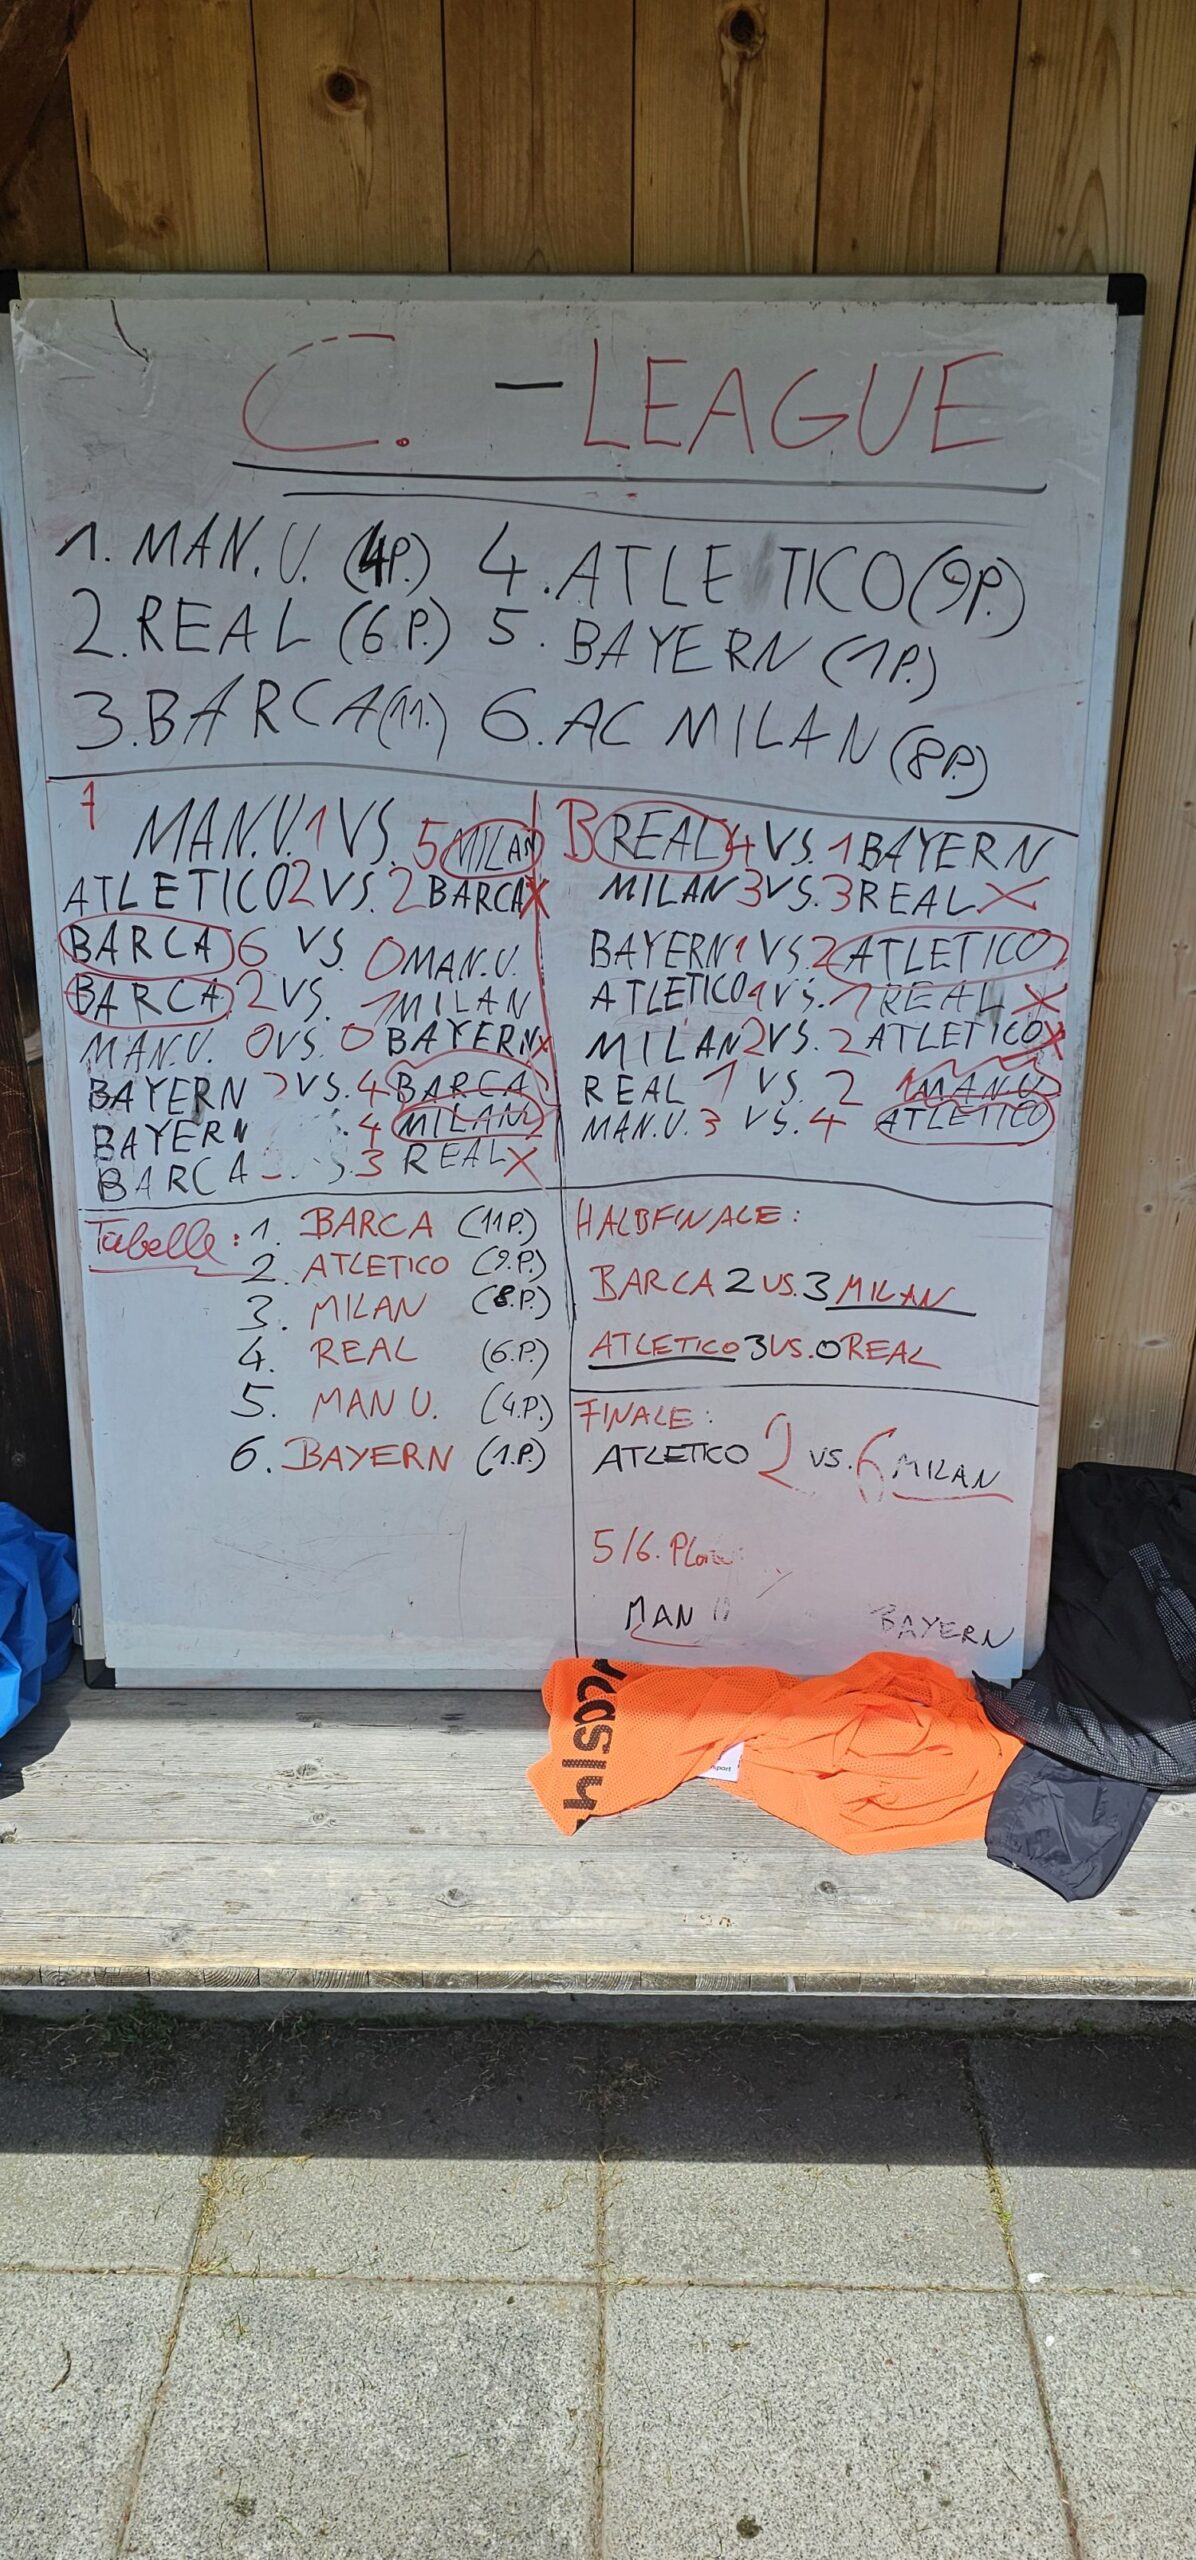 C. - LEAGUE
1. MAN. U. (4P.) 4. ATLETICO (9P.)
2. REAL (6P.) 5. BAYERN (1P.)
3. BARCA (11.) 6. AC MILAN (8P.)
MAN.U. 1 VS. 5 MILAN
ATLETICO 2 VS. 2 BARCA X
BARCA 6 VS. 0 MAN.U.
BARCA 2 VS. 1 MILAN
MAN.U. 0 VS. 0 BAYERN X
BAYERN VS. 4 BARCA
BAYERN 4 MILAN
BARCA 3 REAL X
B REAL 4 VS. 1 BAYERN
MILAN 3 VS. 3 REAL X
BAYERN 1 VS. 2 ATLETICO
ATLETICO 1 VS. 1 REAL X
MILAN 2 VS. 2 ATLETICO X
REAL 1 VS. 2 MAN.U.
MAN.U. 3 VS. 4 ATLETICO
Tabelle: 1. BARCA (11P.)
2. ATLETICO (9.P.)
3. MILAN (8.P.)
4. REAL (6.P.)
5. MAN U. (4.P.)
6. BAYERN (1.P.)
HALBFINALE:
BARCA 2 VS. 3 MILAN
ATLETICO 3 VS. 0 REAL
FINALE:
ATLETICO 2 VS. 6 MILAN
5/6.
MAN BAYERN
hlspor
sport